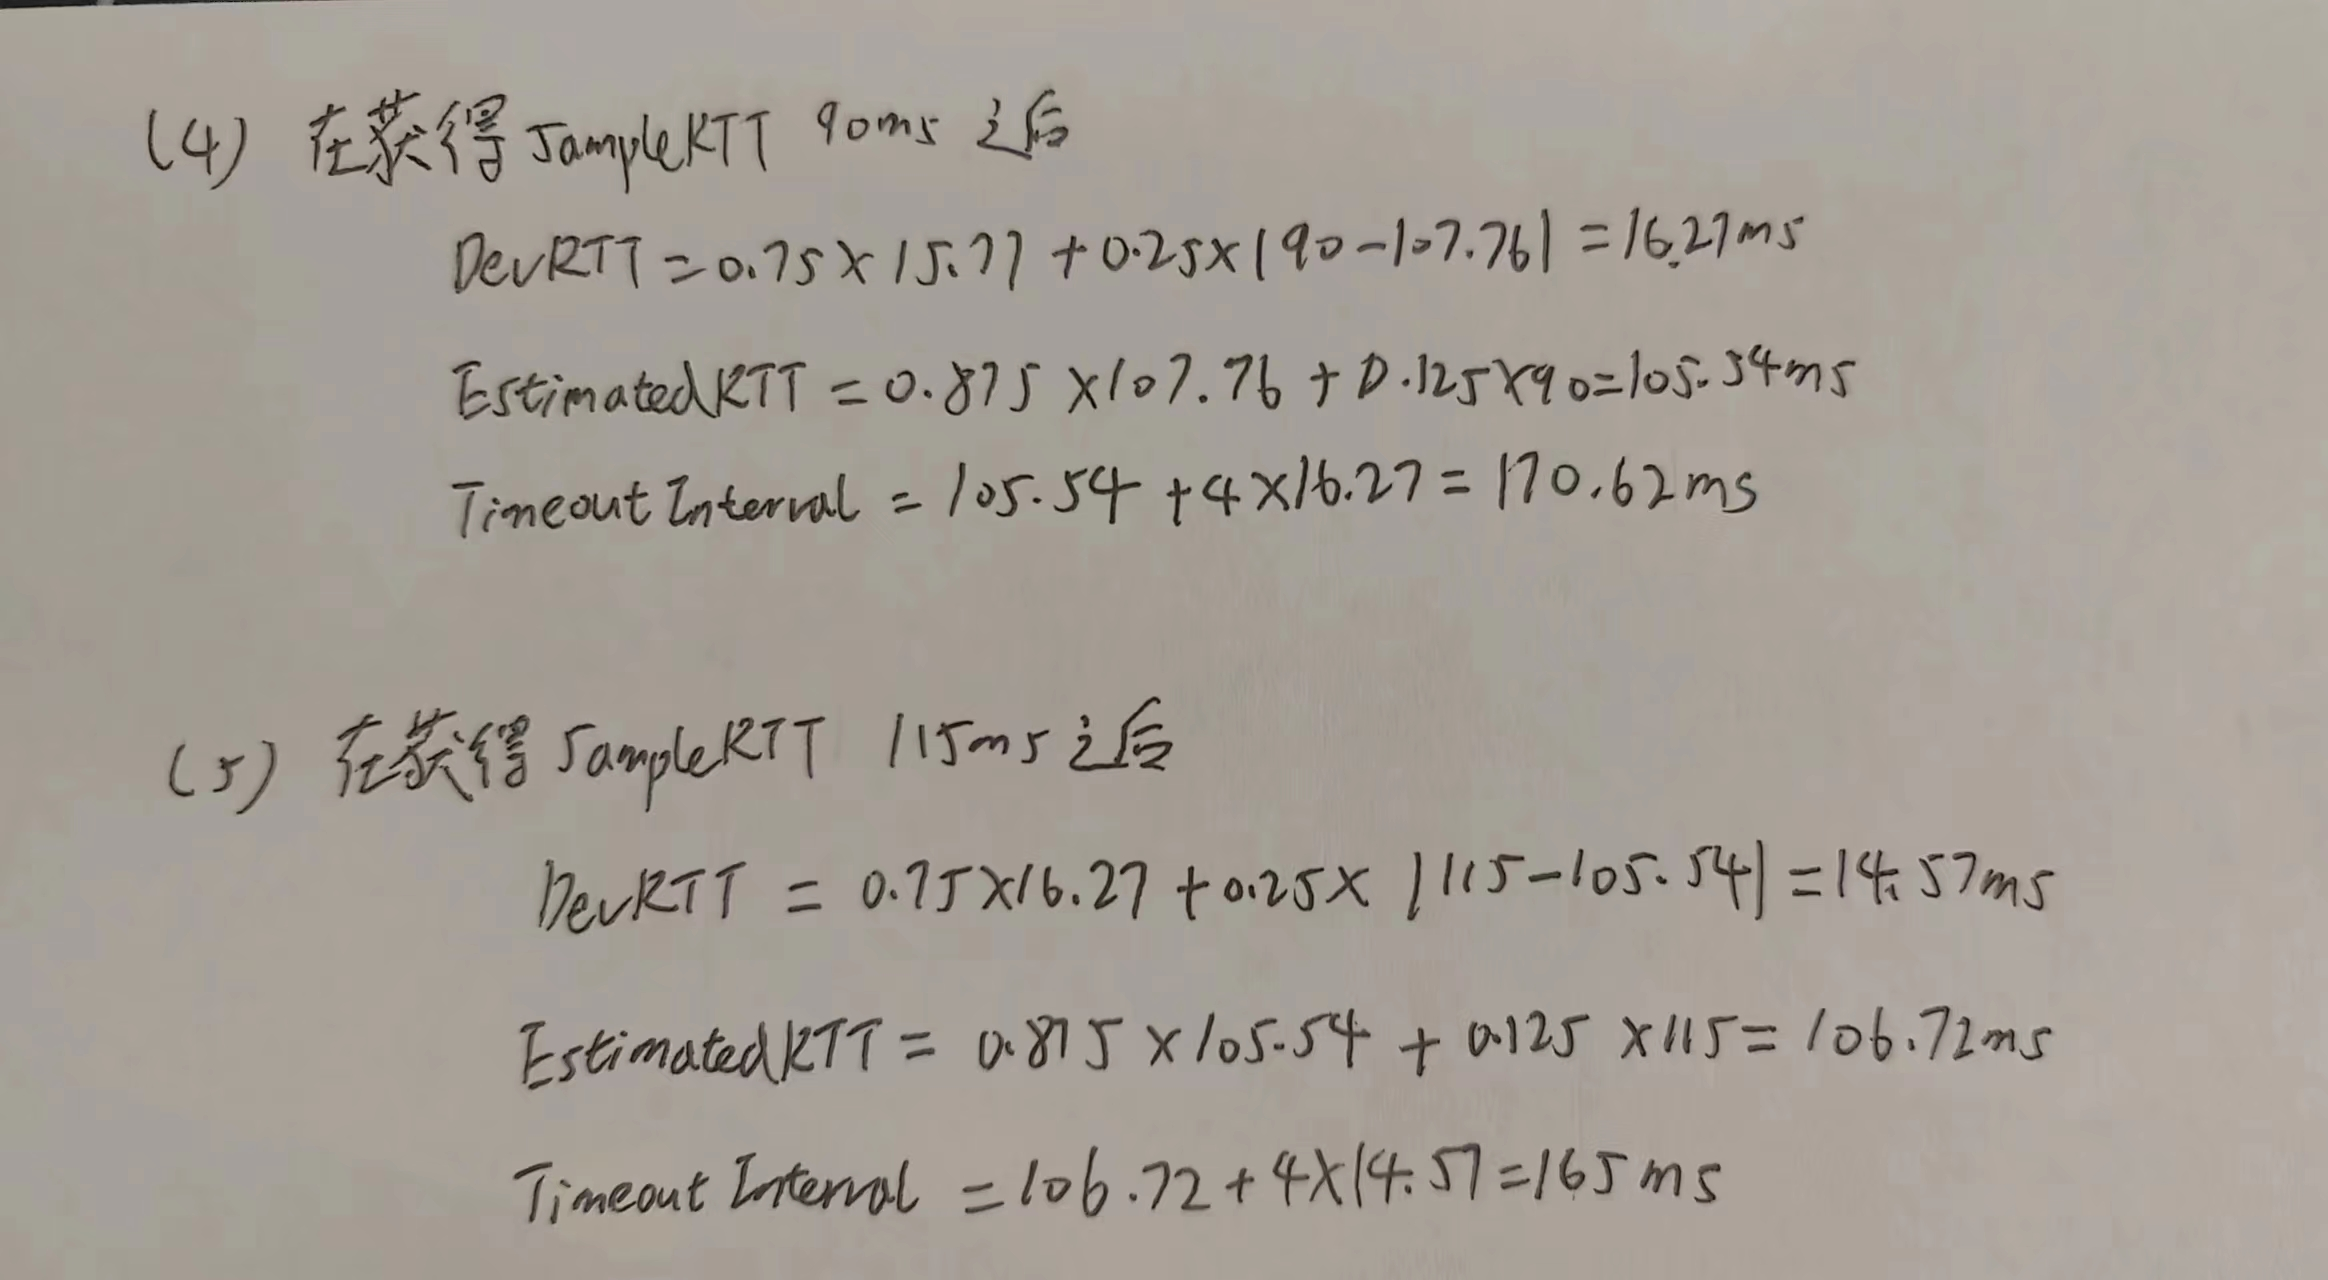 (4) 在获得SampleRTT 90ms 之后
DevRTT = 0.75 × 15.77 + 0.25 × |90 - 107.76| = 16.27ms
EstimatedRTT = 0.875 × 107.76 + 0.125 × 90 = 105.54ms
Timeout Interval = 105.54 + 4 × 16.27 = 170.62ms
(5) 在获得SampleRTT 115ms 之后
DevRTT = 0.75 × 16.27 + 0.25 × |115 - 105.54| = 14.57ms
EstimatedRTT = 0.875 × 105.54 + 0.125 × 115 = 106.72ms
Timeout Interval = 106.72 + 4 × 14.57 = 165ms